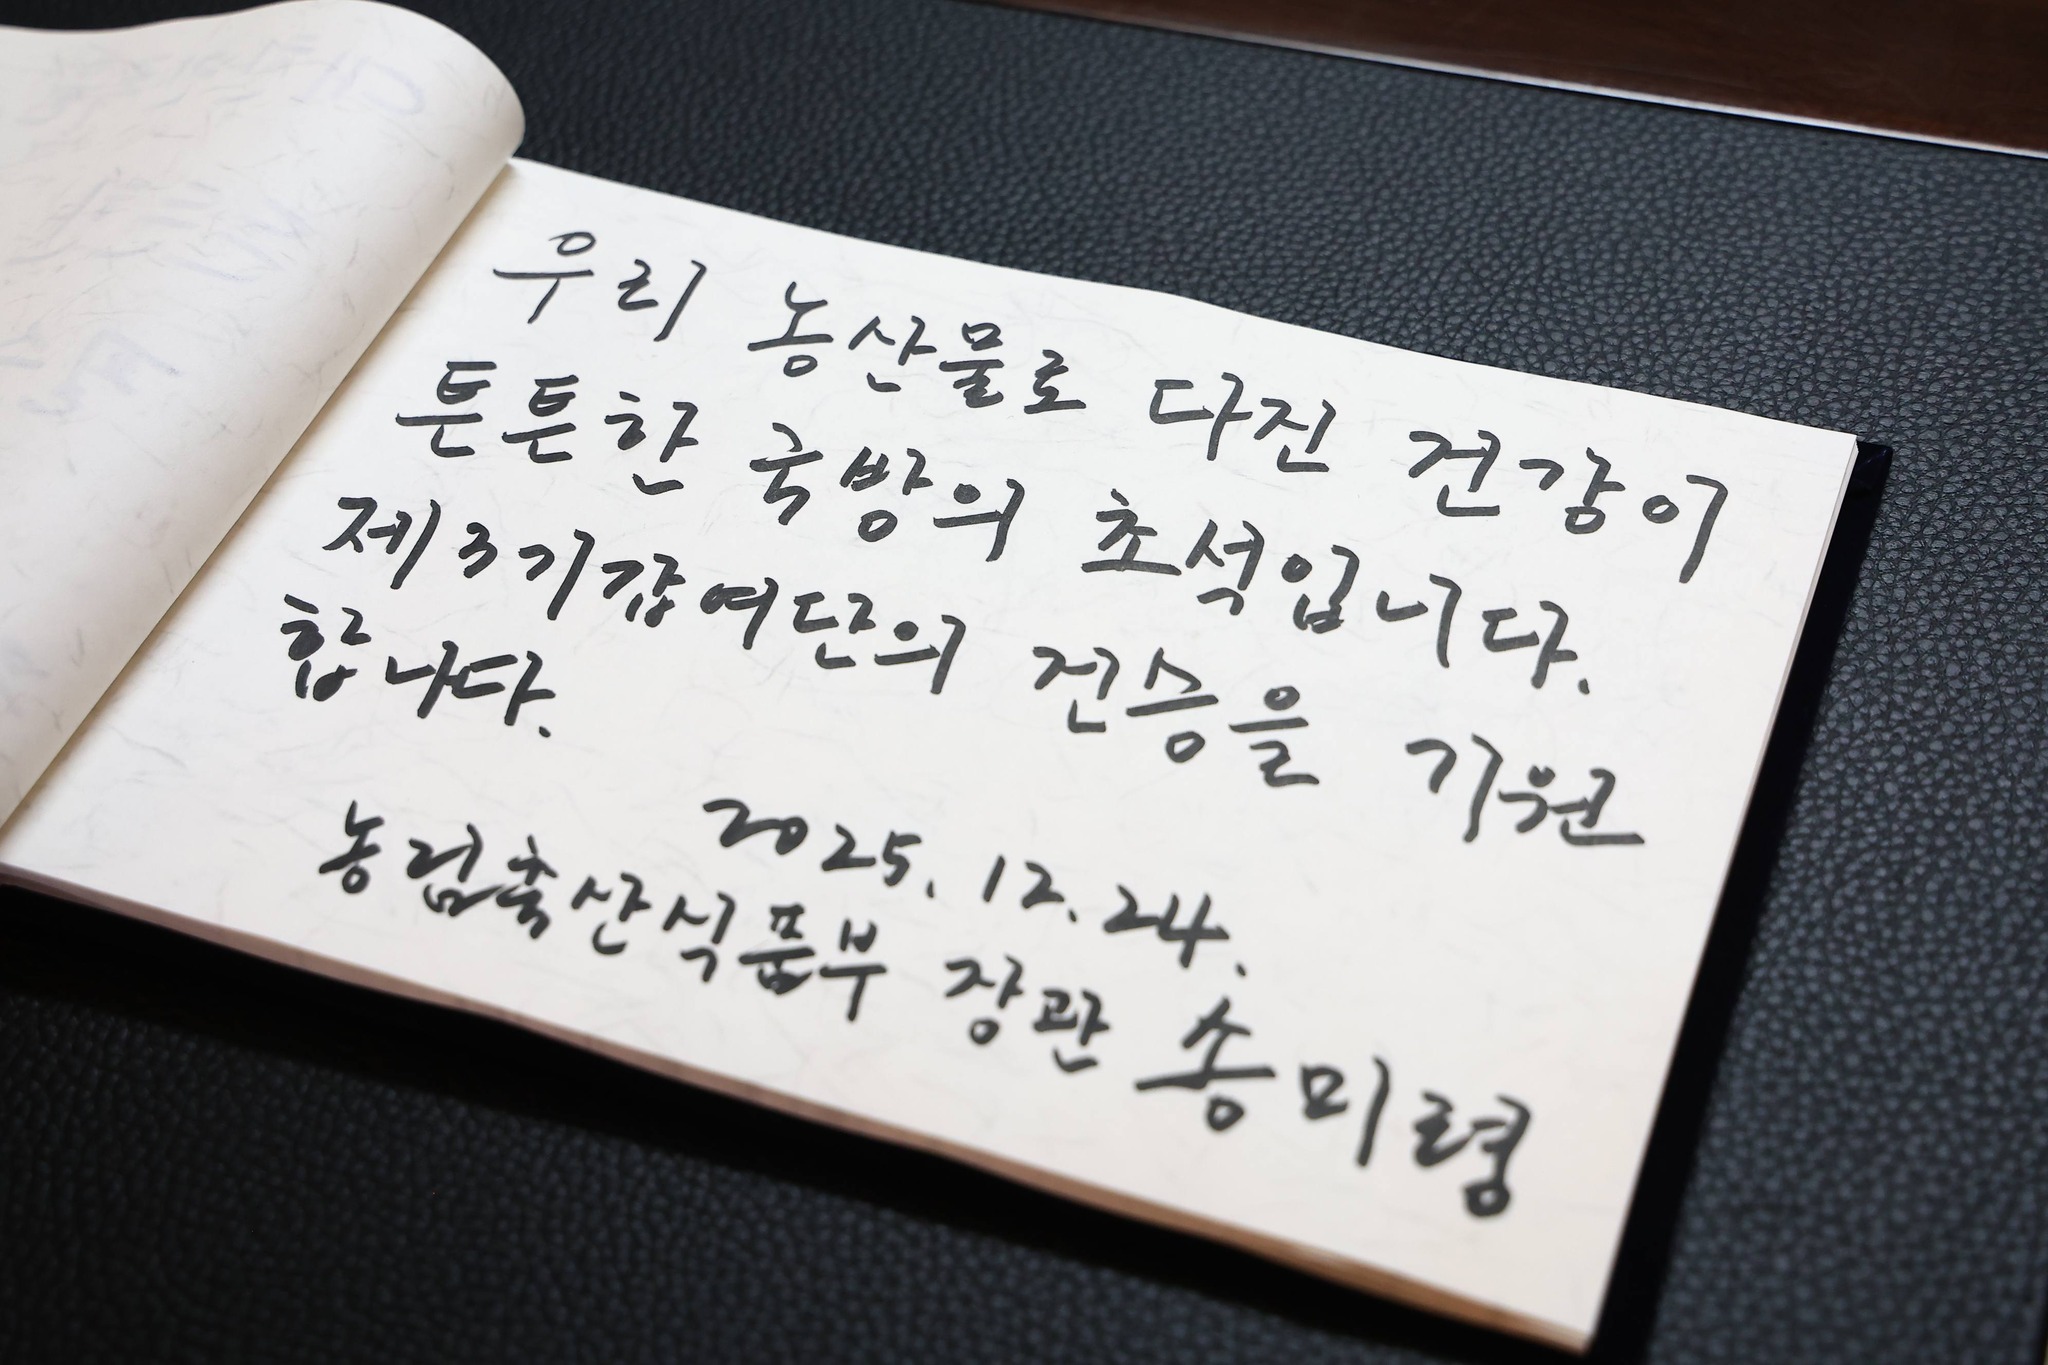 우리 농산물로 다진 건강이
튼튼한 국방의 초석입니다.
제3기갑여단의 건승을 기원
합니다.
2025. 12. 24.
농림축산식품부 장관 송미령